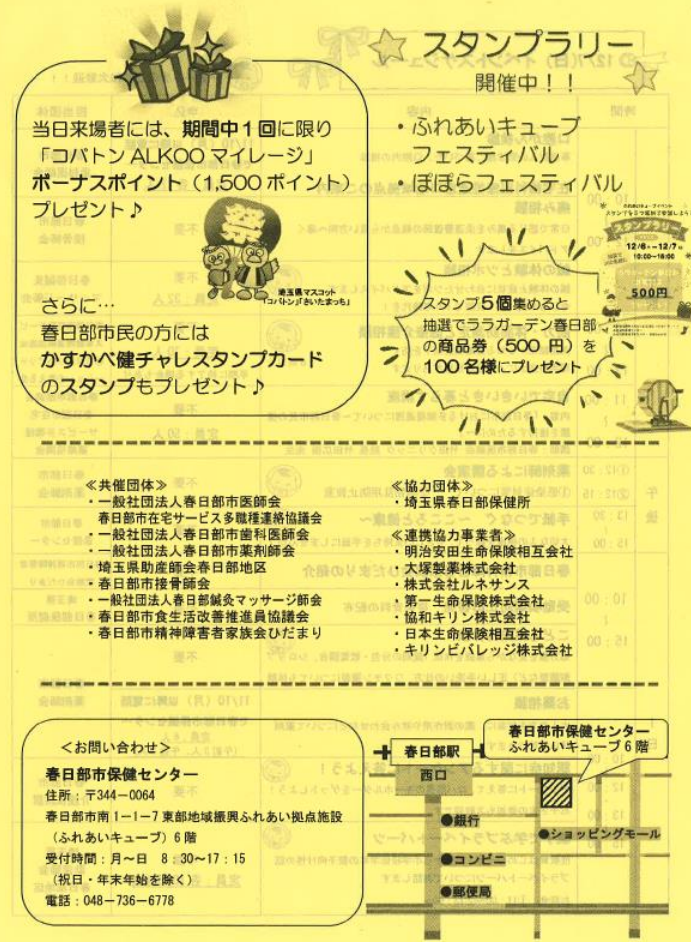 当日来場者には、期間中1回に限り
「コバトン ALKOO マイレージ」
ボーナスポイント(1,500 ポイント)
プレゼント♪
祭
埼玉県マスコット
「コバトン」「さいたまっち」
さらに…
春日部市民の方には
かすかべ健チャレスタンプカード
のスタンプもプレゼント♪
スタンプラリー
開催中!!
・ふれあいキューブ
フェスティバル
・ぽぽらフェスティバル
スタンプラリー
12/6 12/7
10:00~16:00
500円
スタンプ5個集めると
抽選でララガーデン春日部
の商品券(500 円)を
100 名様にプレゼント
≪共催団体≫
・一般社団法人春日部市医師会
春日部市在宅サービス多職種連絡協議会
・一般社団法人春日部市歯科医師会
・一般社団法人春日部市薬剤師会
・埼玉県助産師会春日部地区
・春日部市接骨師会
・一般社団法人春日部鍼灸マッサージ師会
・春日部市食生活改善推進員協議会
・春日部市精神障害者家族会ひだまり
≪協力団体≫
・埼玉県春日部保健所
≪連携協力事業者≫
・明治安田生命保険相互会社
・大塚製薬株式会社
・株式会社ルネサンス
・第一生命保険株式会社
・協和キリン株式会社
・日本生命保険相互会社
・キリンビバレッジ株式会社
<お問い合わせ>
春日部市保健センター
住所:〒344-0064
春日部市南1-1-7 東部地域振興ふれあい拠点施設
(ふれあいキューブ)6階
受付時間:月~日 8:30~17:15
(祝日・年末年始を除く)
電話:048-736-6778
春日部市保健センター
ふれあいキューブ6階
春日部駅
西口
●銀行
●ショッピングモール
●コンビニ
●郵便局